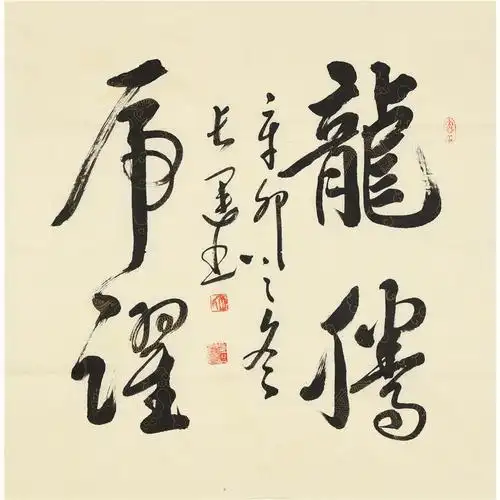 龍騰
虎躍
辛卯之冬
長運書